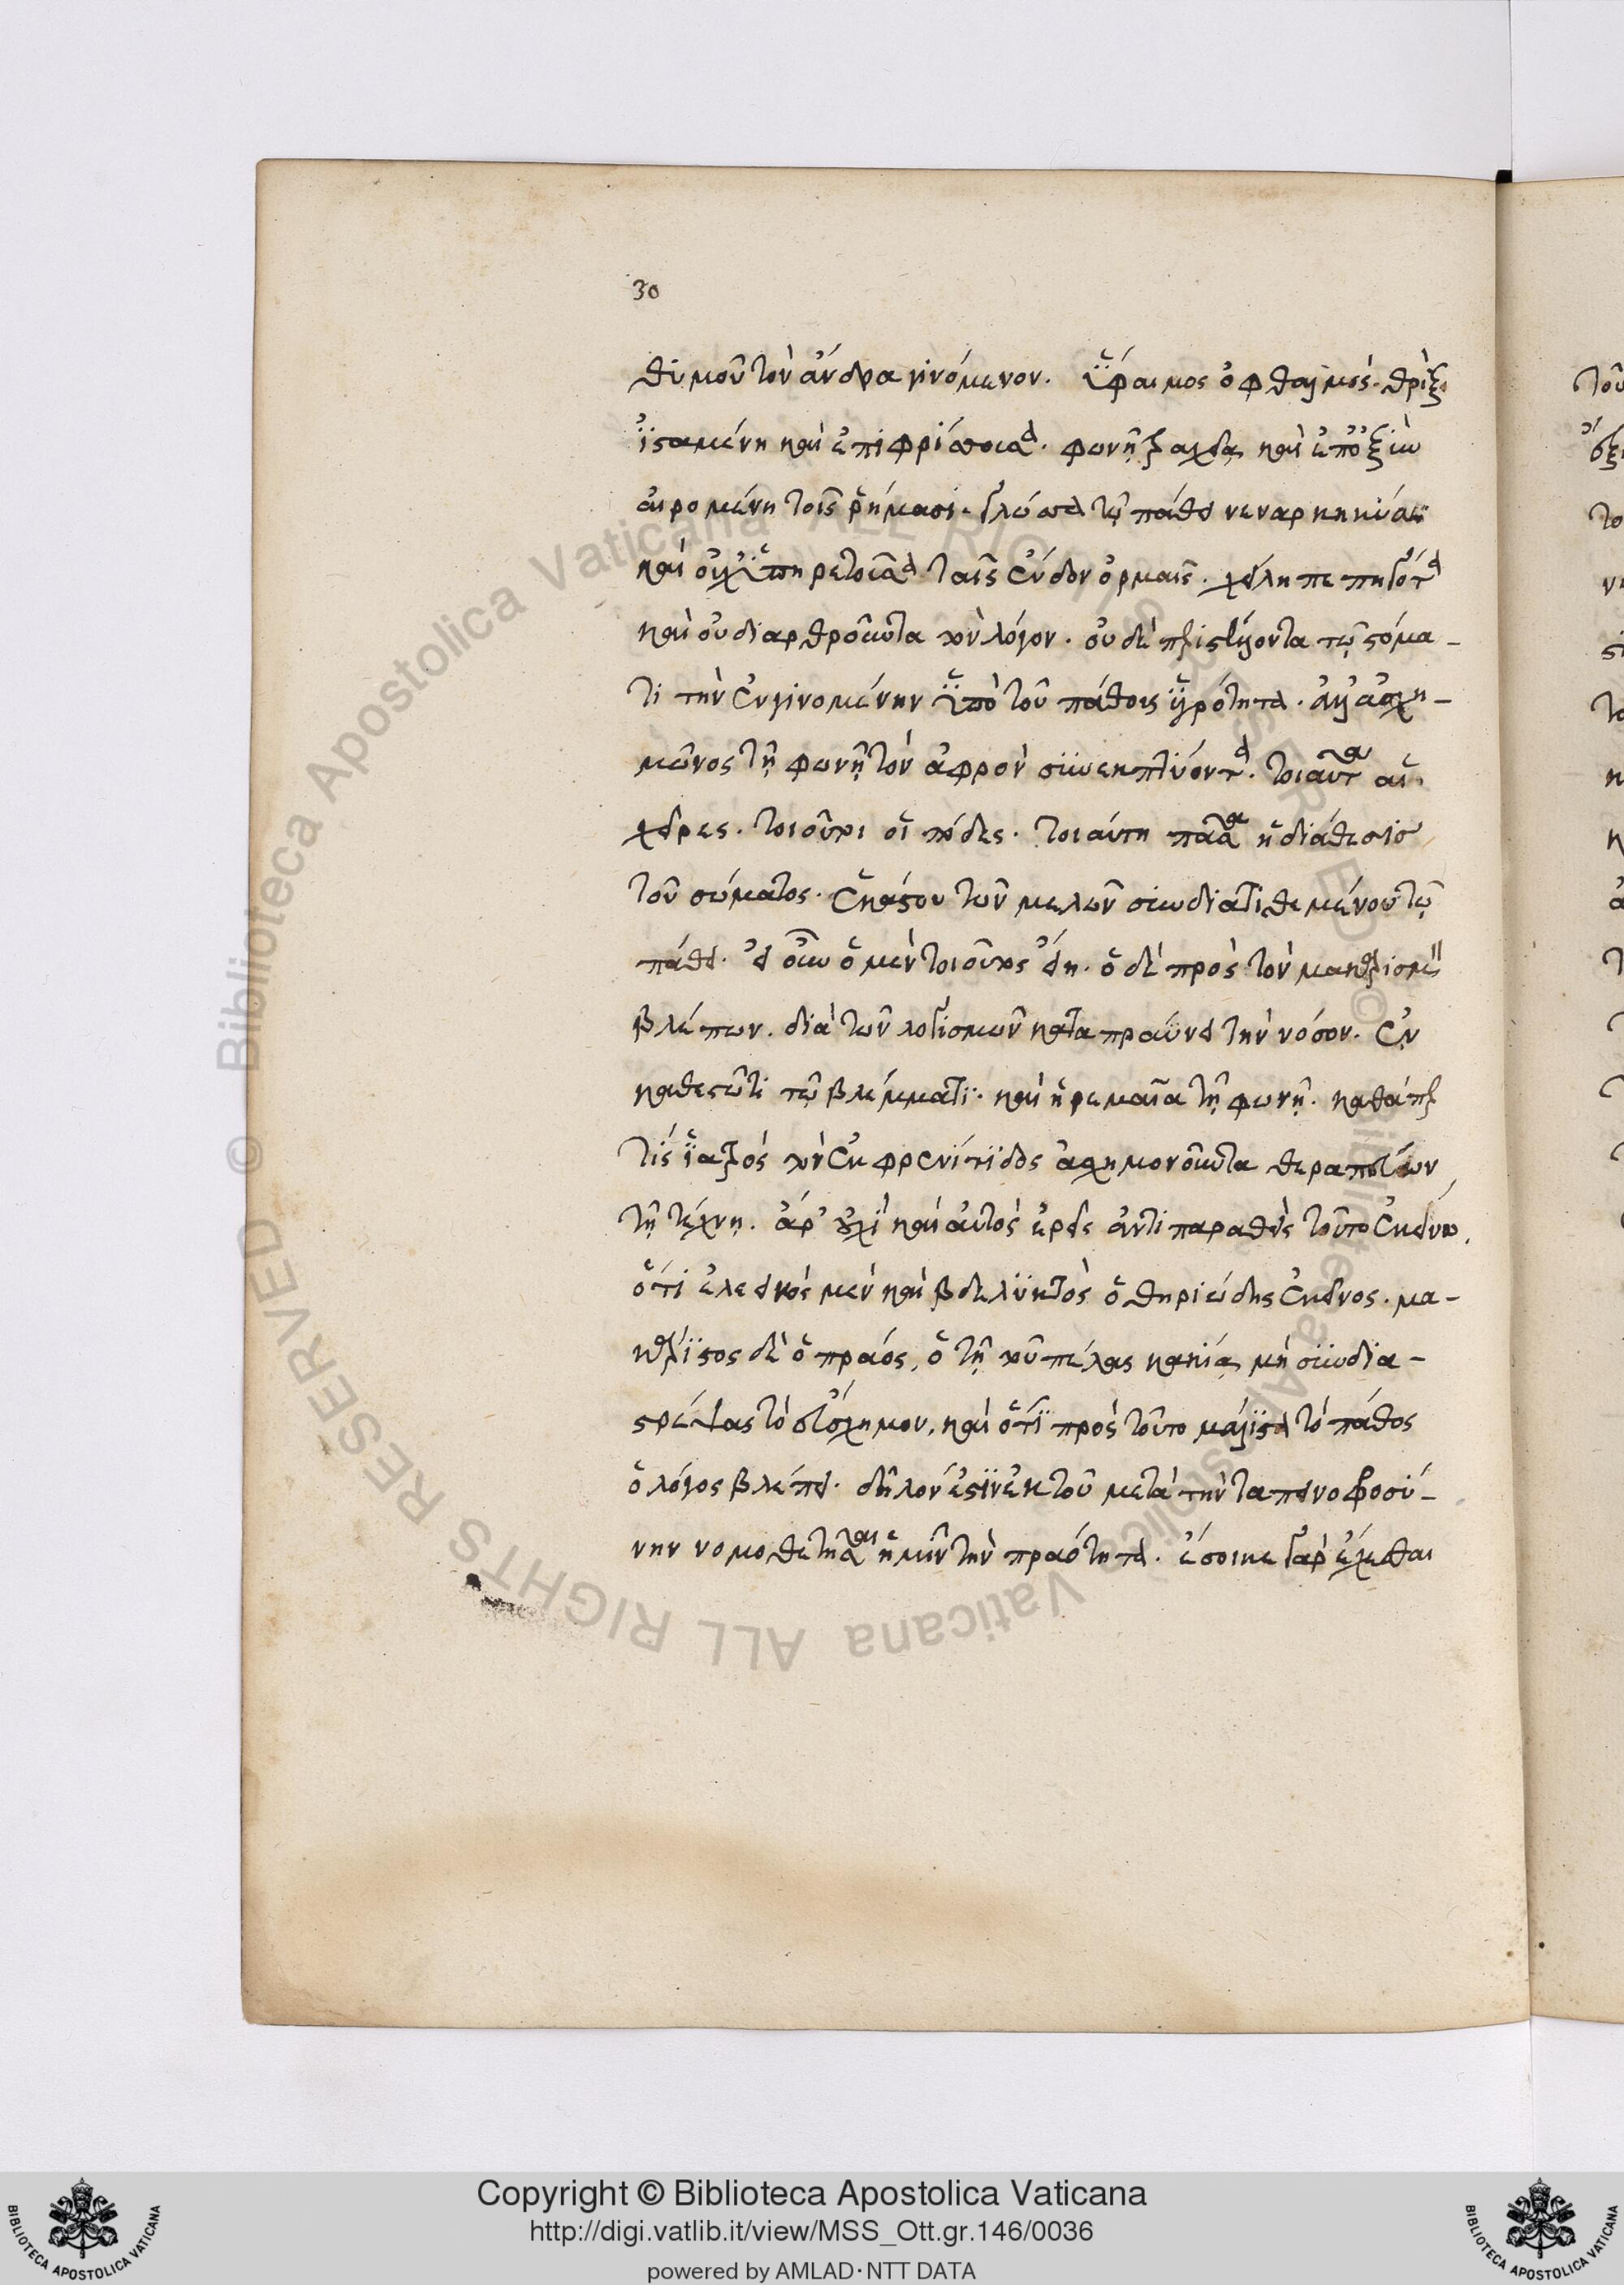 30
θυμοῦ τὸν ἄνδρα γινόμενον. ὕφαιμος ὀφθαλμός. θρὶξ
ἱσταμένη καὶ ἐπιφρίσσουσα. φωνὴ τραχεῖα, καὶ ἐποξύνω
αιρομένη τοῖς ῥήμασι. γλῶσσα τῷ πάθει νεναρκηκυῖα
καὶ οὐχ ὑπηρετοῦσα ταῖς ἔνδον ὁρμαῖς. χείλη πεπηγότα
καὶ οὐ διαρθροῦντα τὸν λόγον. οὐδὲ περιστέλλοντα τῷ στόμα-
τι τὴν ἐγγινομένην ὑπὸ τοῦ πάθους ὑγρότητα. ἀλλ' ἀσχη-
μόνως τῇ φωνῇ τὸν ἀφρὸν συνεκπτύοντα. τοιαῦται αἱ
χεῖρες. τοιοῦτοι οἱ πόδες. τοιαύτη πᾶσα ἡ διάθεσις
τοῦ σώματος. ἑκάστου τῶν μελῶν συνδιατιθεμένου τῷ
πάθει. εἰ οὖν ὁ μὲν τοιοῦτος εἴη. ὁ δὲ πρὸς τὸν μακαρισμὸν
βλέπων. διὰ τῶν λογισμῶν καταπραΰνει τὴν νόσον. ἐν
καθεστῶτι τῷ βλέμματι. καὶ ἠρεμαία τῇ φωνῇ. καθάπερ
τὶς ἰατρὸς τὸν ἐκ φρενίτιδος ἀσχημονοῦντα θεραπεύων
τῇ τέχνῃ. ἆρ' οὐχὶ καὶ αὐτὸς ἐρεῖς ἀντιπαραθεὶς τοῦτο ἐκείνῳ,
ὅτι ἐλεεινὸς μὲν καὶ βδελυκτὸς ὁ θηριώδης ἐκεῖνος. μα-
κάριστος δὲ ὁ πρᾶος, ὁ τῇ τοῦ πέλας κακίᾳ μὴ συνδια-
στρέψας τὸ εὔσχημον. καὶ ὅτι πρὸς τοῦτο μάλιστα τὸ πάθος
ὁ λόγος βλέπει. δῆλόν ἐστιν ἐκ τοῦ μετὰ τὴν ταπεινοφροσύ-
νην νομοθετῆσαι ἡμῖν τὴν πραότητα. ἔοικε γὰρ ἔχεσθαι
Copyright © Biblioteca Apostolica Vaticana
http://digi.vatlib.it/view/MSS_Ott.gr.146/0036
powered by AMLAD·NTT DATA